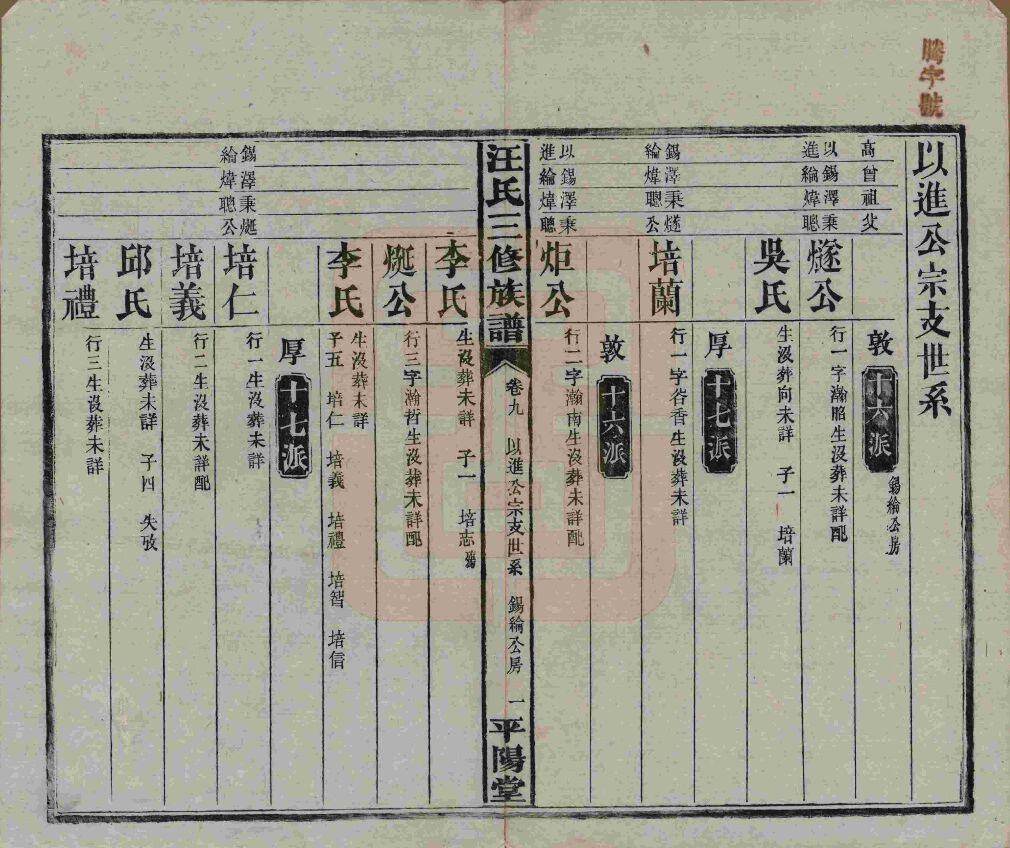 騰字號
以進公宗支世系
高曾祖父
敦 十六派 錫綸公房
以錫澤秉
進綸煒聰
燧公 行一字瀚昭生沒葬未詳配
吳氏 生沒葬向未詳 子一 培蘭
厚 十七派
錫澤秉燧
綸煒聰公
培蘭 行一字谷香生沒葬未詳
敦 十六派
以錫澤秉
進綸煒聰
炬公 行二字瀚南生沒葬未詳配
汪氏三修族譜 卷九 以進公宗支世系 錫綸公房 一 平陽堂
李氏 生沒葬未詳 子一 培志
烻公 行三字瀚哲生沒葬未詳配
李氏 生沒葬未詳
子五 培仁 培義 培禮 培智 培信
厚 十七派
錫澤秉烻
綸煒聰公
培仁 行一生沒葬未詳
培義 行二生沒葬未詳配
邱氏 生沒葬未詳 子四 失攷
培禮 行三生沒葬未詳